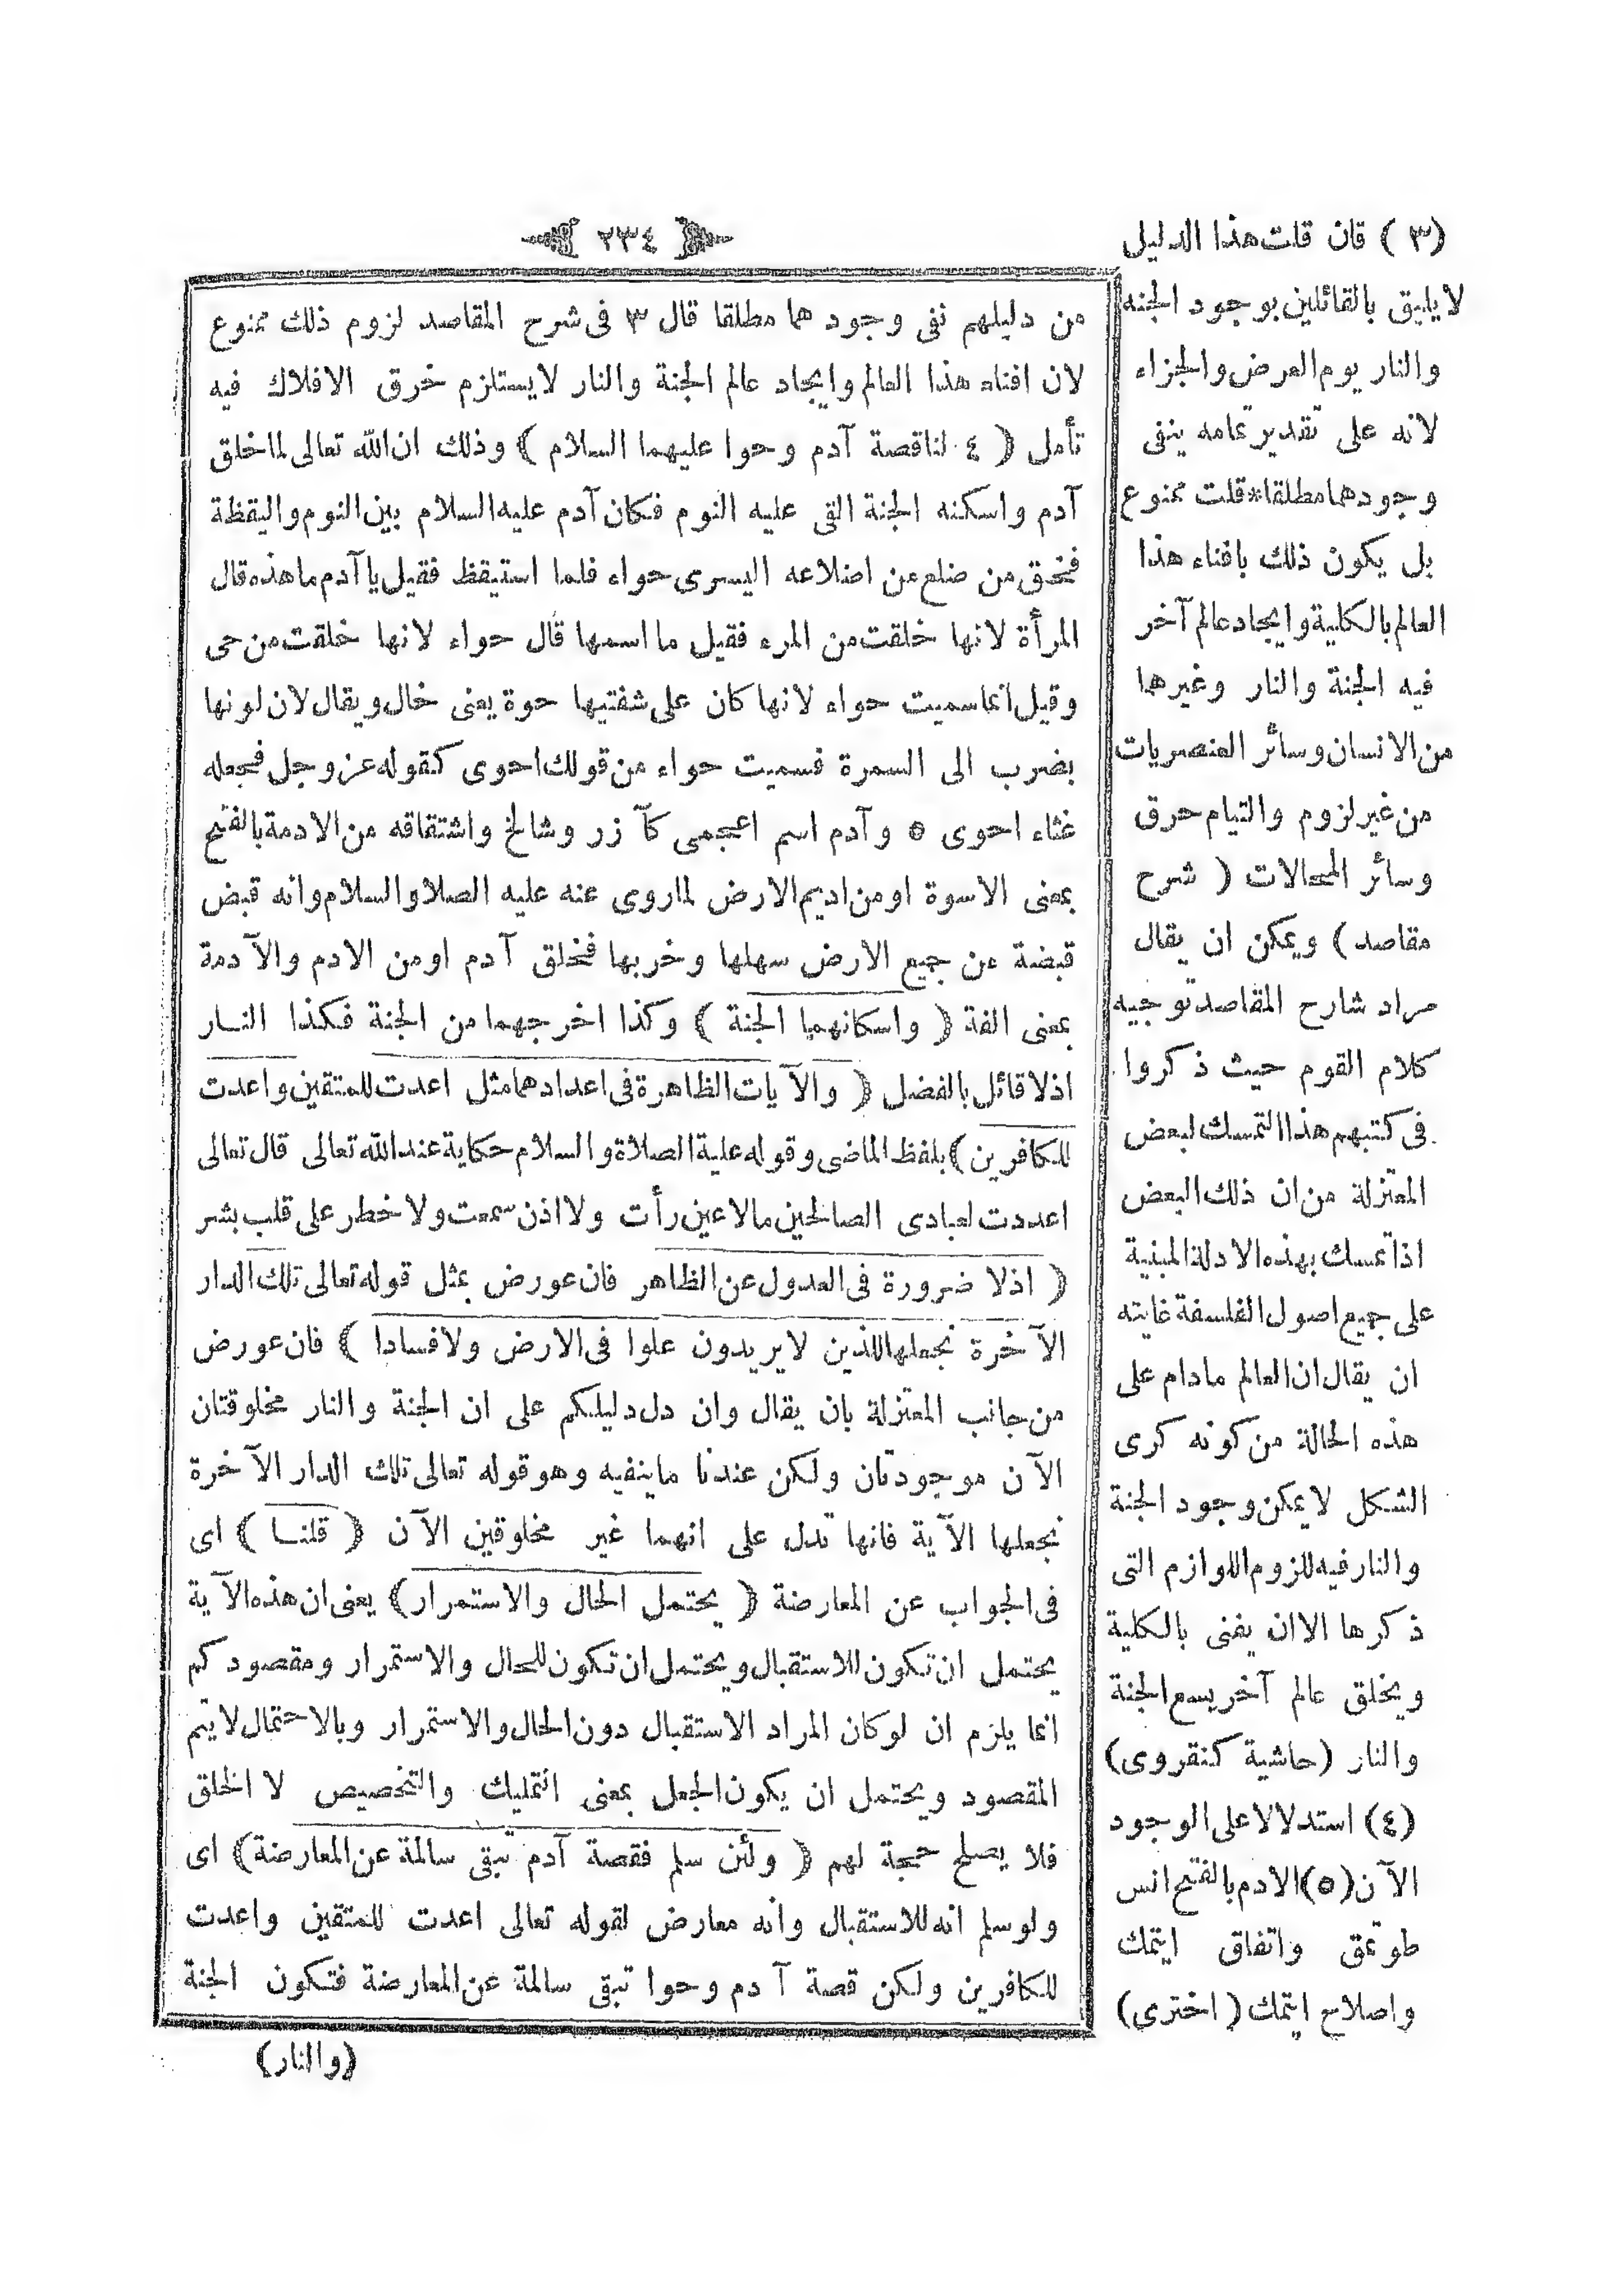 ﴿ ٢٣٤ ﴾
من دليلهم نفى وجود هما مطلقا قال ٣ فى شرح المقاصد لزوم ذلك ممنوع
لان افناء هذا العالم وايجاد عالم الجنة والنار لايستلزم خرق الافلاك فيه
تأمل ( ٤ لناقصة آدم وحوا عليهما السلام ) وذلك ان الله تعالى لماخلق
آدم واسكنه الجنة القى عليه النوم فكان آدم عليه السلام بين النوم واليقظة
فخق من ضلع من اضلاعه اليسرى حواء فلما استيقظ فقيل يا آدم ما هذه قال
المرأة لانها خلقت من المرء فقيل ما اسمها قال حواء لانها خلقت من حى
وقيل انما سميت حواء لانها كان على شفتيها حوة يعنى خال ويقال لان لونها
بضرب الى السمرة فسميت حواء من قولك احوى كقوله عز وجل فجعله
غثاء احوى ٥ وآدم اسم اعجمى كآ زر وشالخ واشتقاقه من الادمة بالفتح
بمعنى الاسوة او من اديم الارض لماروى عنه عليه الصلا والسلام وانه قبض
قبضة من جميع الارض سهلها وخربها فخلق آدم او من الادم والآ دمة
بمعنى الفة ( واسكانهما الجنة ) وكذا اخرجهما من الجنة فكذا النار
اذلا قائل بالفضل ( والآ يات الظاهرة فى اعدادهما مثل اعدت للمتقين واعدت
للكافرين ) بلفظ الماضى وقوله علية الصلاة والسلام حكاية عند الله تعالى قال تعالى
اعددت لعبادى الصالحين مالا عين رأت ولا اذن سمعت ولا خطر على قلب بشر
( اذلا ضرورة فى العدول عن الظاهر فان عورض بمثل قوله تعالى تلك الدار
الآ خرة نجعلها للذين لا يريدون علوا فى الارض ولا فسادا ) فان عورض
من جانب المعتزلة بان يقال وان دل دليلكم على ان الجنة والنار مخلوقتان
الآ ن موجودتان ولكن عندنا ما ينفيه وهو قوله تعالى تلك الدار الآ خرة
نجعلها الآ ية فانها تدل على انهما غير مخلوقين الآ ن ( قلنا ) اى
فى الجواب عن المعارضة ( يحتمل الحال والاستمرار ) يعنى ان هذه الآ ية
يحتمل ان تكون للاستقبال ويحتمل ان تكون للحال والاستمرار ومقصود كم
انما يلزم ان لو كان المراد الاستقبال دون الحال والاستمرار وبالاحتمال لايتم
المقصود ويحتمل ان يكون الجعل بمعنى التمليك والتخصيص لا الخلق
فلا يصلح حجة لهم ( ولئن سلم فقصة آدم تبقى سالمة عن المعارضة ) اى
ولو سلم انه للاستقبال وانه معارض لقوله تعالى اعدت للمتقين واعدت
للكافرين ولكن قصة آ دم وحوا تبقى سالمة عن المعارضة فتكون الجنة
(والنار)
(٣ ) فان قلت هذا الدليل
لا يليق بالقائلين بوجود الجنه
والنار يوم العرض والجزاء
لانه على تقدير تمامه ينفى
وجودهما مطلقا*قلت ممنوع
بل يكون ذلك بافناء هذا
العالم بالكلية وايجاد عالم آخر
فيه الجنة والنار وغيرها
من الانسان وسائر العنصريات
من غير لزوم والتيام حرق
وسائر المحالات ( شرح
مقاصد ) ويمكن ان يقال
مراد شارح المقاصد توجيه
كلام القوم حيث ذكروا
فى كتبهم هذا التمسك لبعض
المعتزلة من ان ذلك البعض
اذا تمسك بهذه الادلة المبنية
على جميع اصول الفلسفة غايته
ان يقال ان العالم مادام على
هذه الحالة من كونه كرى
الشكل لا يمكن وجود الجنة
والنار فيه للزوم اللوازم التى
ذكرها الا ان يفنى بالكلية
ويخلق عالم آخر يسع الجنة
والنار (حاشية كنقروى)
(٤) استدلالا على الوجود
الآ ن (٥) الادم بالفتح انس
طوتمق واتفاق ايتمك
واصلاح ايتمك ( اخترى )